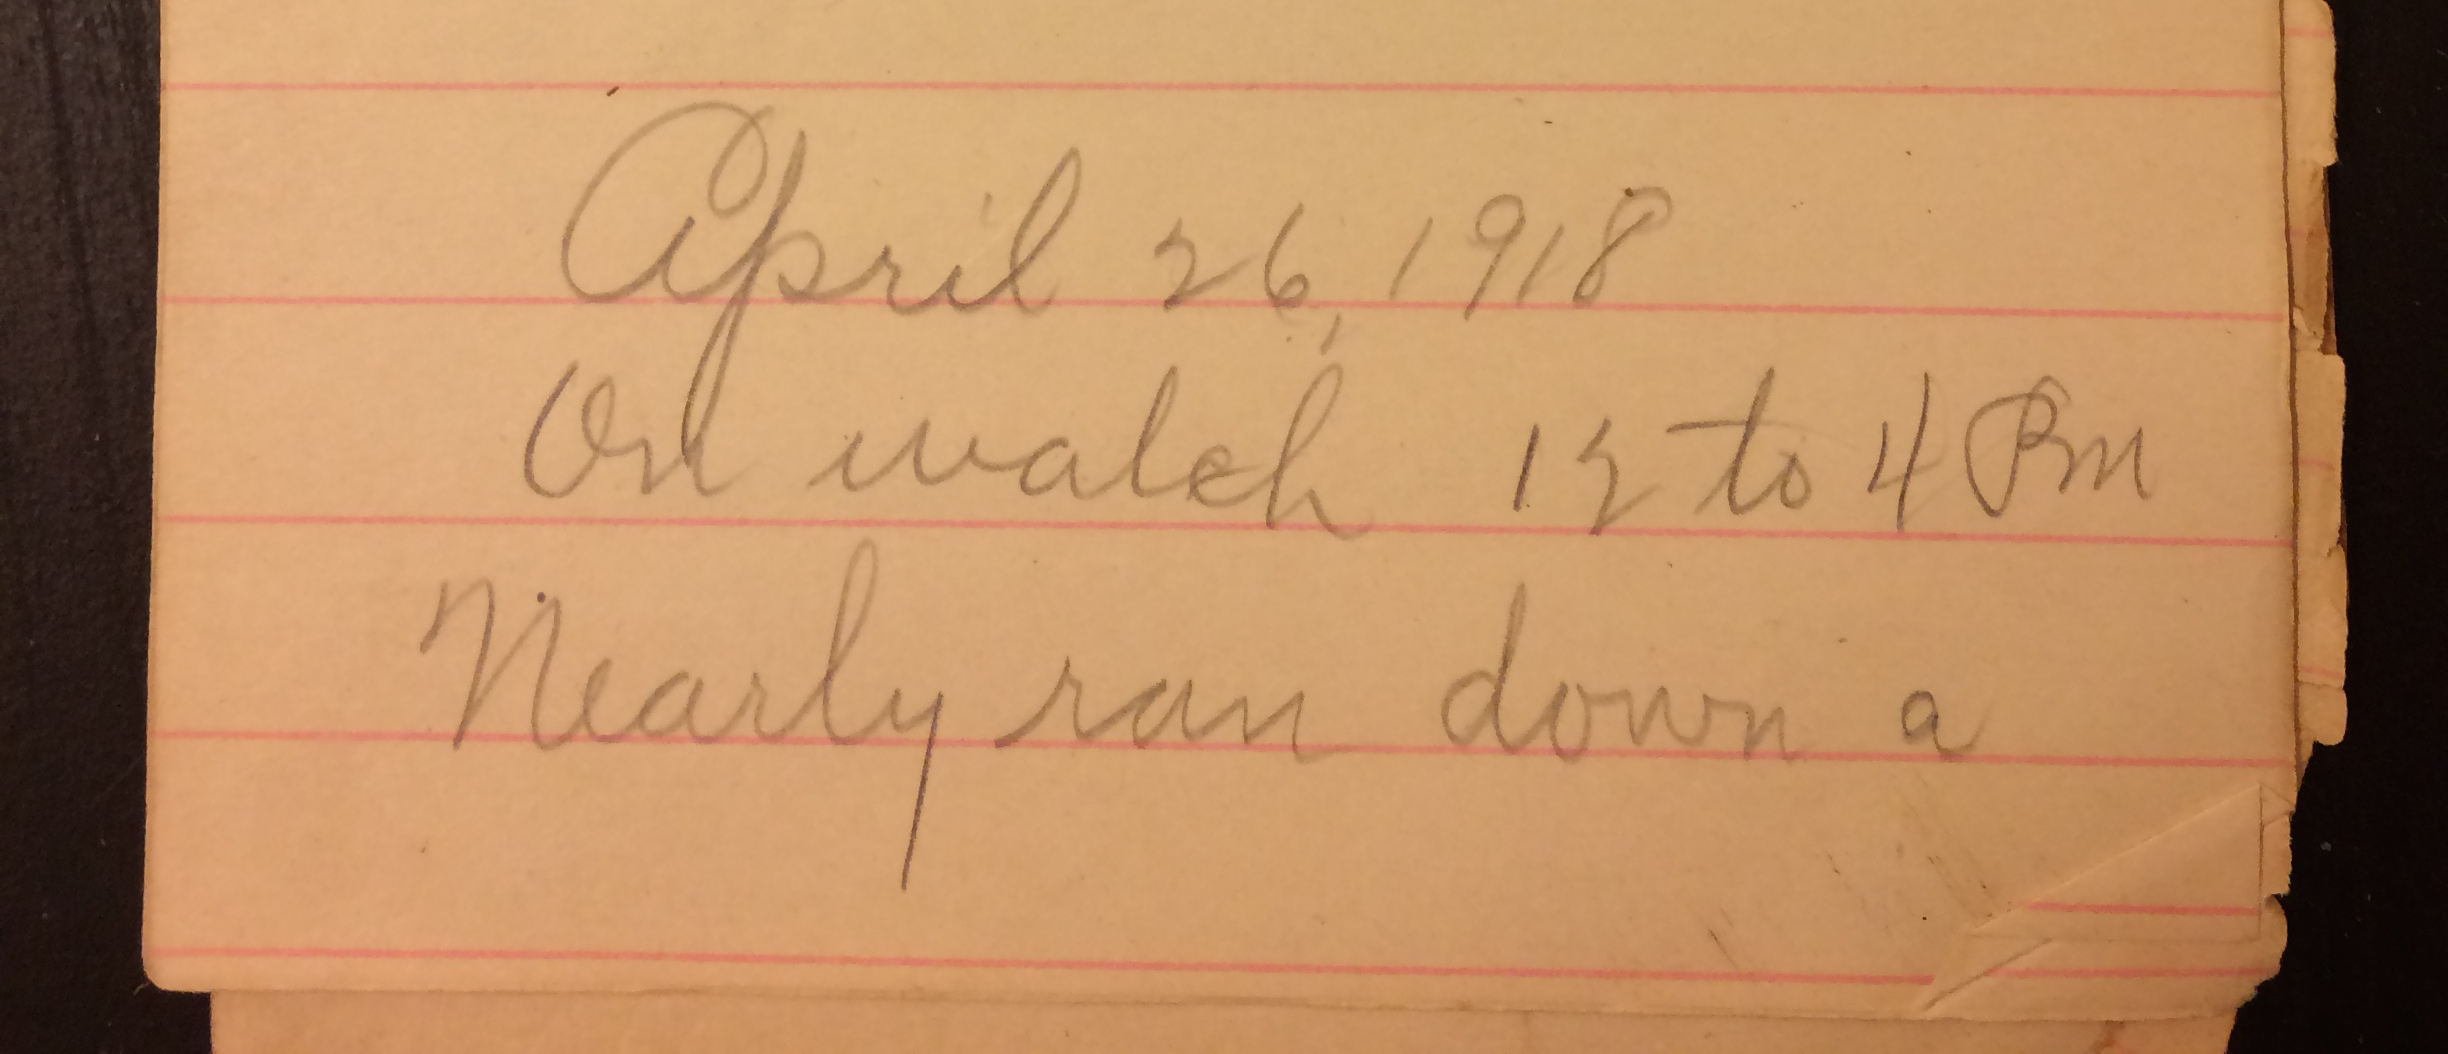 April 26, 1918
On watch 12 to 4 Pm
Nearly ran down a